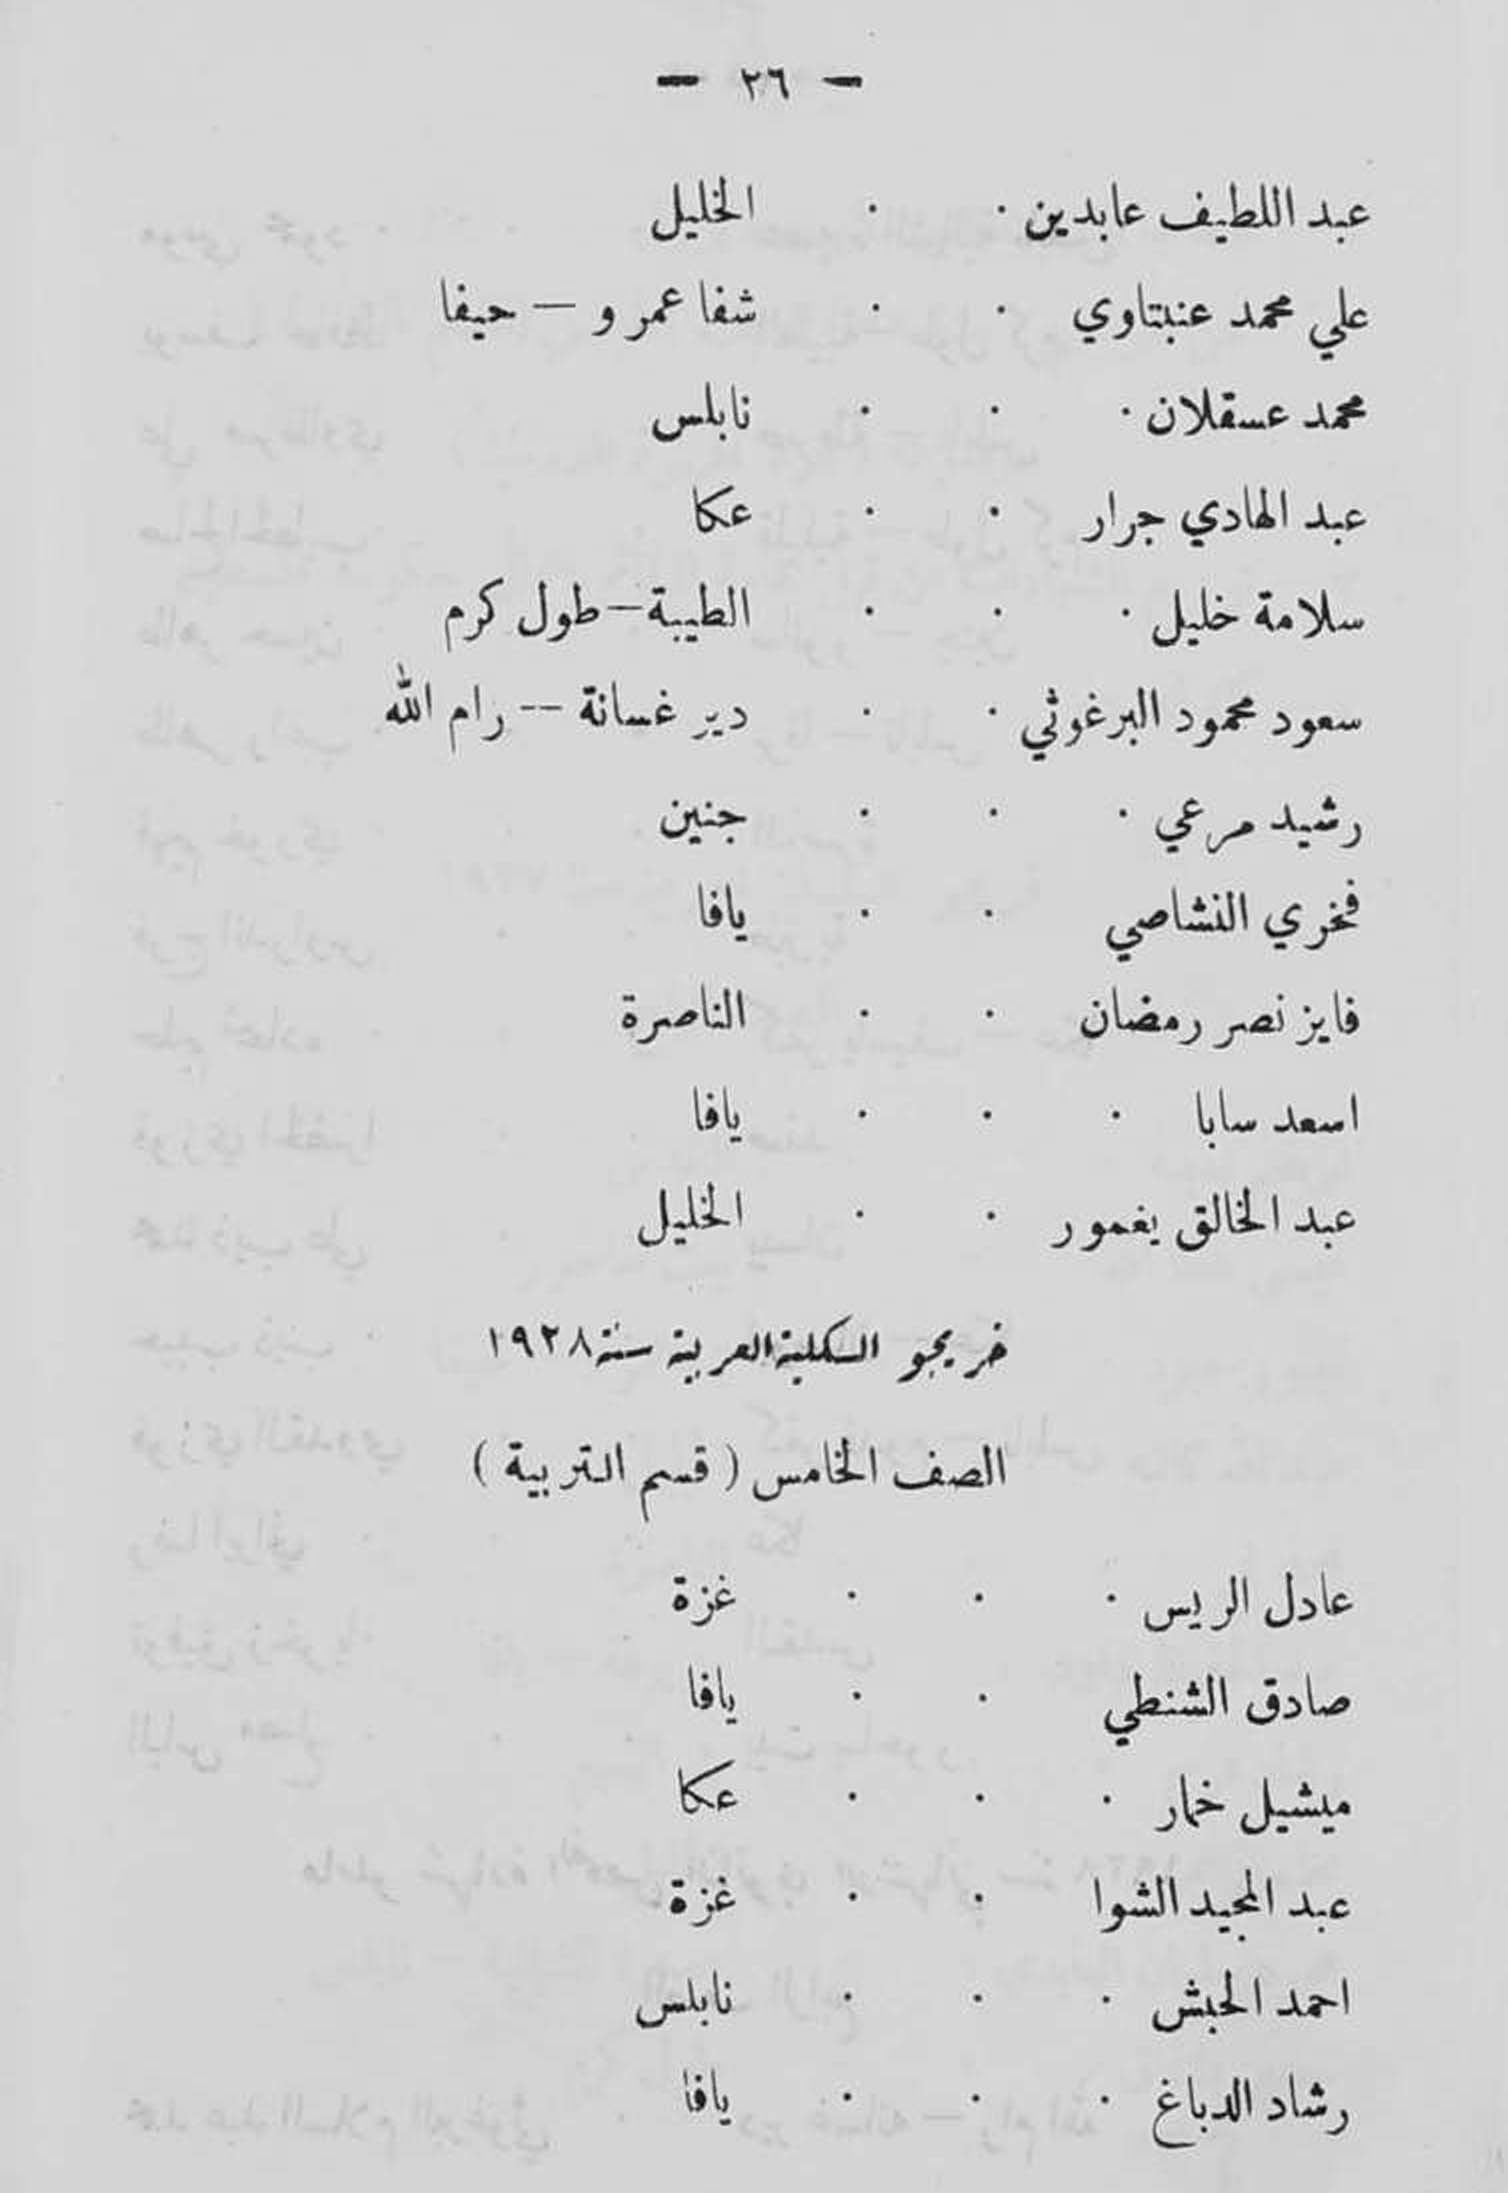 — ٢٦ —
عبد اللطيف عابدين · · الخليل
علي محمد عنبتاوي · · شفا عمرو — حيفا
محمد عسقلان · · · نابلس
عبد الهادي جرار · · عكا
سلامة خليل · · · الطيبة — طول كرم
سعود محمود البرغوثي · · دير غسانة -- رام الله
رشيد مرعي · · · جنين
فخري النشاصي · · يافا
فايز نصر رمضان · · الناصرة
اسعد سابا · · · يافا
عبد الخالق يغمور · · الخليل
خريجو الكلية العربية سنة ١٩٢٨
الصف الخامس ( قسم التربية )
عادل الريس · · · غزة
صادق الشنطي · · يافا
ميشيل خمار · · · عكا
عبد المجيد الشوا · · غزة
احمد الحبش · · · نابلس
رشاد الدباغ · · · يافا